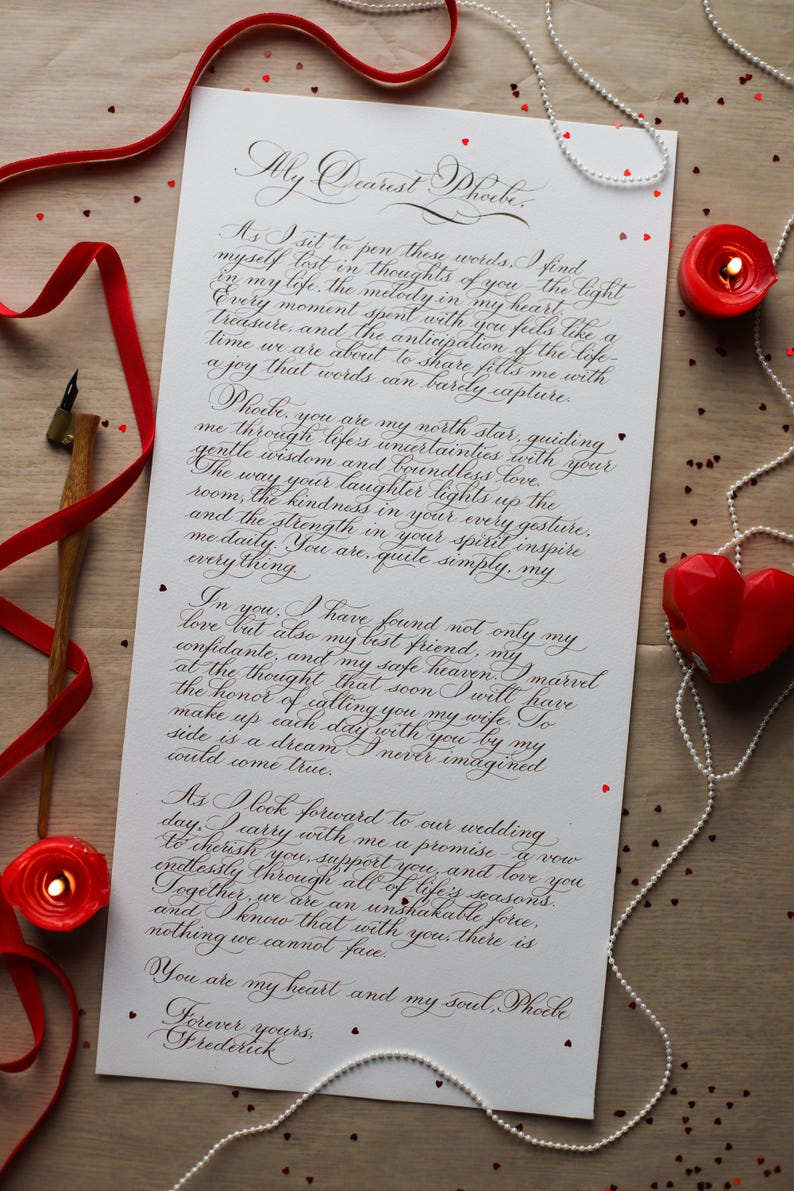 My Dearest Phoebe,
As I sit to pen these words, I find
myself lost in thoughts of you – the light
in my life, the melody in my heart.
Every moment spent with you feels like a
treasure, and the anticipation of the life-
time we are about to share fills me with
a joy that words can barely capture.
Phoebe, you are my north star, guiding
me through life's uncertainties with your
gentle wisdom and boundless love.
The way your laughter lights up the
room, the kindness in your every gesture,
and the strength in your spirit inspire
me daily. You are, quite simply, my
everything.
In you, I have found not only my
love but also my best friend, my
confidante, and my safe heaven. I marvel
at the thought that soon I will have
the honor of calling you my wife. To
make up each day with you by my
side is a dream I never imagined
could come true.
As I look forward to our wedding
day, I carry with me a promise – a vow
to cherish you, support you, and love you
endlessly through all of life's seasons.
Together, we are an unshakable force,
and I know that with you, there is
nothing we cannot face.
You are my heart and my soul, Phoebe
Forever yours,
Frederick